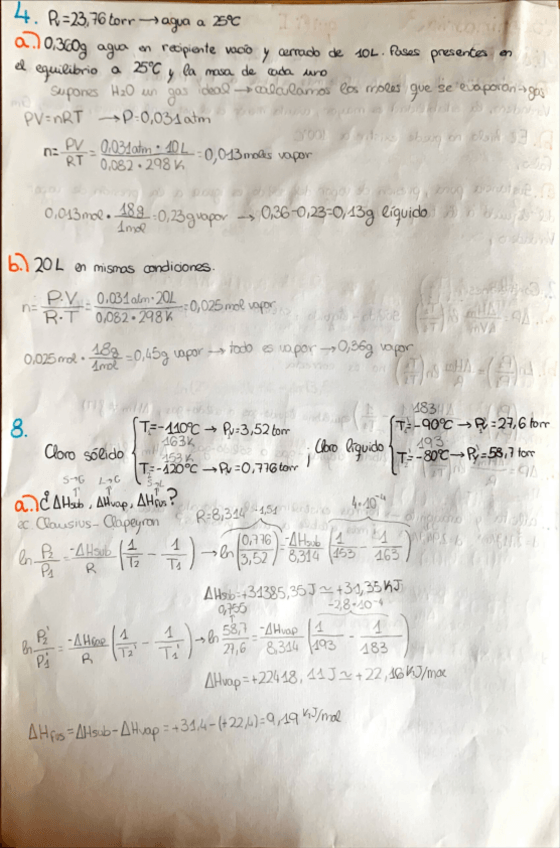 4. Pv=23,76 torr → agua a 25ºC
a.) 0,360g agua en recipiente vacío y cerrado de 10L. Fases presentes en
el equilibrio a 25ºC y la masa de cada uno
Supones H2O un gas ideal → calculamos los moles que se evaporan → gas
PV=nRT → P=0,031 atm
n= PV/RT = 0,031 atm · 10 L / 0,082 · 298 K = 0,013 moles vapor
0,013 mol · 18g/1mol = 0,23g vapor → 0,36-0,23=0,13g líquido
b.) 20L en mismas condiciones.
n= P·V/R·T = 0,031 atm · 20L / 0,082 · 298 K = 0,025 mol vapor
0,025 mol · 18g/1mol = 0,45g vapor → todo es vapor → 0,36g vapor
8. Cloro sólido { T1=-110ºC → Pv=3,52 torr ; Cloro líquido { T1'=-90ºC → Pv'=27,6 torr
163K 183K
153K 193
T2=-120ºC → Pv=0,776 torr T2'=-80ºC → Pv'=58,7 torr
S→G L→G S→L
a.) ¿ΔHsub, ΔHvap, ΔHfus?
ec Clausius-Clapeyron R=8,314 -1,51 4·10^-4
ln P2/P1 = -ΔHsub/R (1/T2 - 1/T1) → ln (0,776/3,52) = -ΔHsub/8,314 (1/153 - 1/163)
ΔHsub=+31385,35 J ≃ +31,35 KJ
0,755 -2,8·10^-4
ln P2'/P1' = -ΔHvap/R (1/T2' - 1/T1') → ln 58,7/27,6 = -ΔHvap/8,314 (1/193 - 1/183)
ΔHvap=+22418,11 J ≃ +22,16 KJ/mol
ΔHfus=ΔHsub-ΔHvap=+31,4-(+22,4)=9,19 KJ/mol